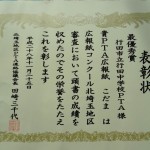 表彰状
最優秀賞
行田市立行田中学校PTA 様
貴PTA広報紙 こだま は
広報紙コンクール北埼玉地区
審査において頭書の成績を
収めたのでその栄誉をたたえ
これを彰します
平成二十八年十一月二十六日
田﨑三千代